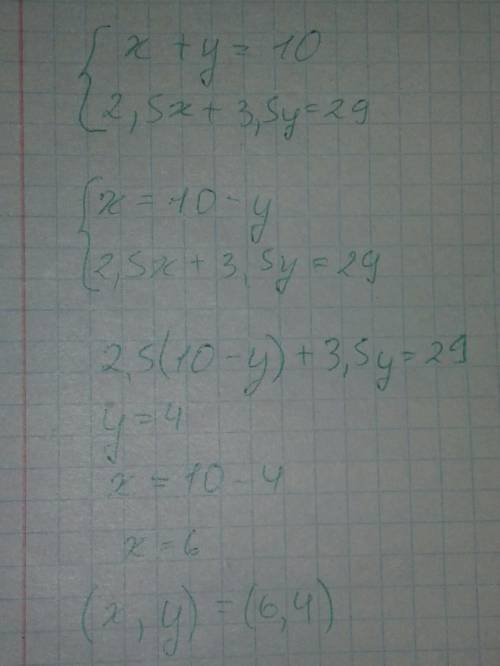 x + y = 10
2,5x + 3,5y = 29
x = 10 - y
2,5x + 3,5y = 29
2,5(10 - y) + 3,5y = 29
y = 4
x = 10 - 4
x = 6
(x, y) = (6,4)